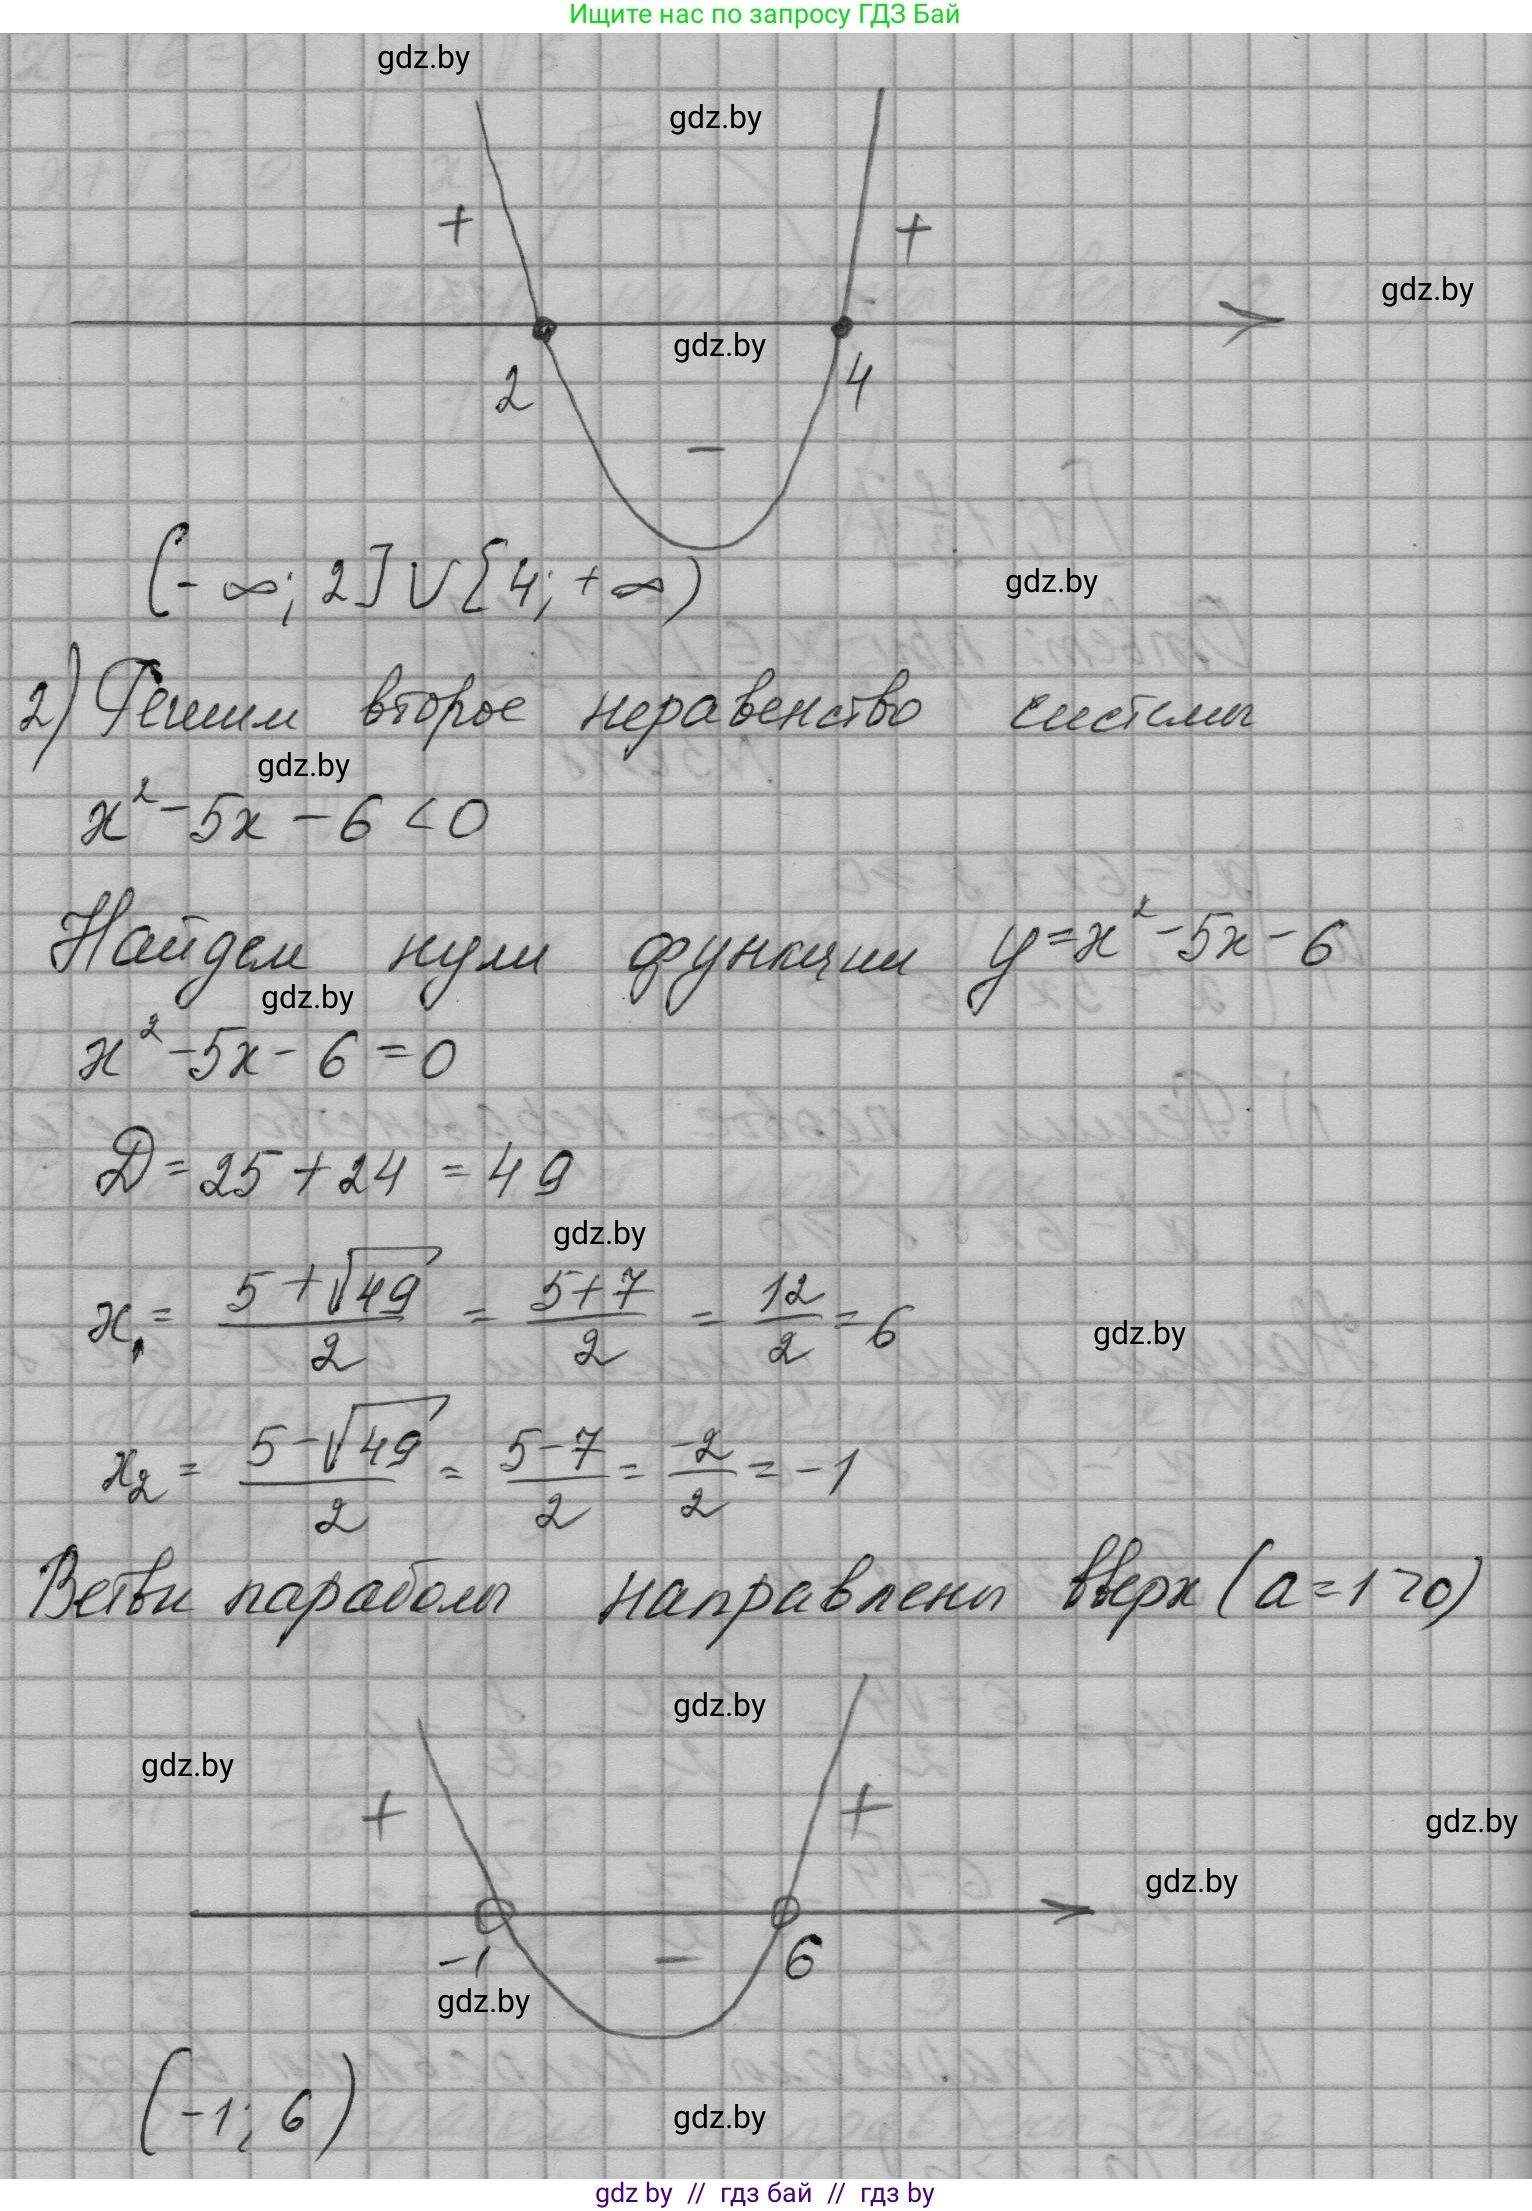 Ищите нас по запросу ГДЗ Бай
gdz.by
gdz.by
+ +
gdz.by
gdz.by
2 4
−
(-∞; 2]∪[4; +∞)
gdz.by
2) Решим второе неравенство системы
gdz.by
x² - 5x - 6 < 0
Найдем нули функции y = x² - 5x - 6
gdz.by
x² - 5x - 6 = 0
D = 25 + 24 = 49
gdz.by
x₁ = (5 + √49)/2 = (5 + 7)/2 = 12/2 = 6
gdz.by
x₂ = (5 - √49)/2 = (5 - 7)/2 = -2/2 = -1
Ветви параболы направлены вверх (a = 1 > 0)
gdz.by
gdz.by
+ +
gdz.by
gdz.by
-1 − 6
gdz.by
(-1; 6)
gdz.by
gdz by // гдз бай // гдз by